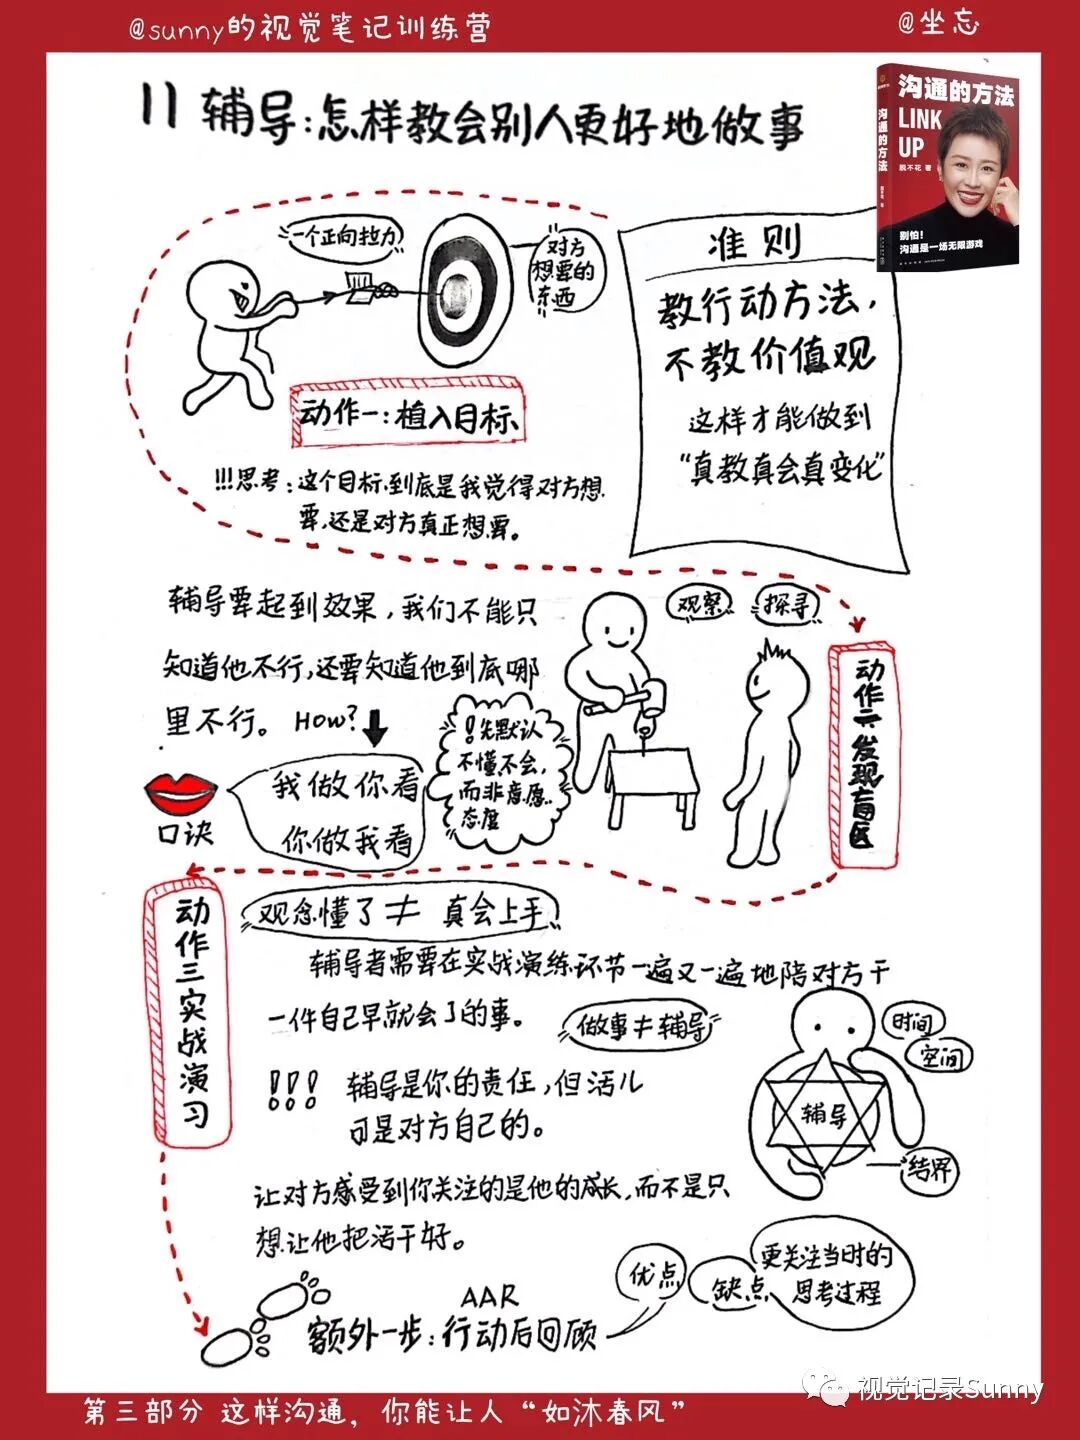 @sunny的视觉笔记训练营
@坐忘
11 辅导：怎样教会别人更好地做事
沟通的方法
LINK
UP
脱不花 著
别怕！
沟通是一场无限游戏
沟通的方法
一个正向拉力
对方
想要的
东西
动作一：植入目标
!!!思考：这个目标到底是我觉得对方想
要，还是对方真正想要。
准则
教行动方法，
不教价值观
这样才能做到
“真教真会真变化”
辅导要起到效果，我们不能只
知道他不行，还要知道他到底哪
里不行。How?
口诀
我做你看
你做我看
!先默认
不懂不会，
而非意愿
态度
观察
探寻
动作二发现盲区
动作三实战演习
观念懂了≠真会上手
辅导者需要在实战演练环节一遍又一遍地陪对方干
一件自己早就会了的事。
做事≠辅导
!!! 辅导是你的责任，但活儿
可是对方自己的。
辅导
时间
空间
结界
让对方感受到你关注的是他的成长，而不是只
想让他把活干好。
AAR
额外一步：行动后回顾
优点
缺点
更关注当时的
思考过程
视觉记录Sunny
第三部分 这样沟通，你能让人“如沐春风”